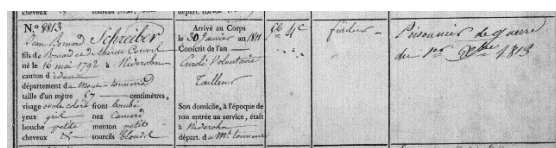 cheveux sourcils
départ. d
N.° 8813
Jean Bernard Schreiber
fils de Bernard et de thérèse
né le 16 mai 1792 à Niderohm
canton d
département du Mont-tonnerre
taille d'un mètre 67 centimètres,
visage ovale front bombé
yeux gris nez Camard
bouche petite menton petit
cheveux & sourcils blonds
Arrivé au Corps
le 30 Janvier an 1811
Conscrit de l'an
Enrôlé Volontaire
Tailleur
Son domicile, à l'époque de
son entrée au service, était
à Niderohm
départ. du Mt. tonnerre
6e 4e
fusilier
Prisonnier de guerre
du 1er 1813